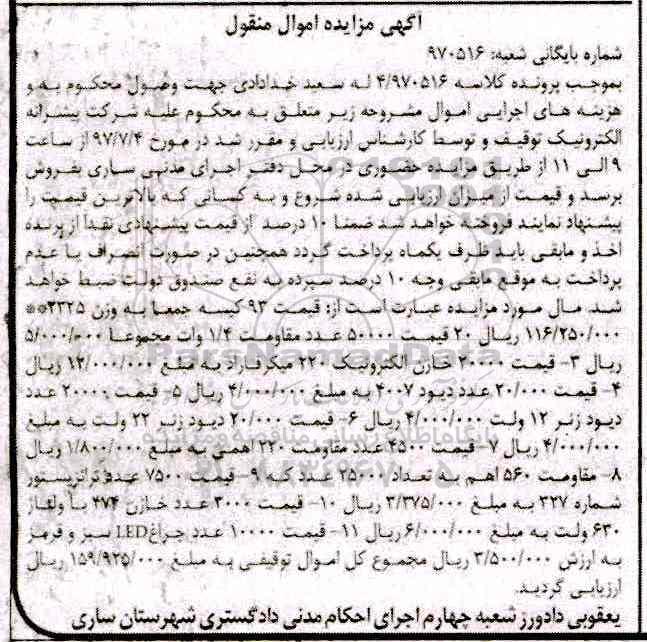 آگهی مزایده اموال منقول
شماره بایگانی شعبه: ۹۷۰۵۱۶
بموجب پرونده کلاسه ۴/۹۷۰۵۱۶ له سعید خدادادی جهت وصول محکوم به و
هزینه های اجرایی اموال مشروحه زیر متعلق به محکوم علیه شرکت پیشرانه
الکترونیک توقیف و توسط کارشناس ارزیابی و مقرر شد در مورخ ۹۷/۷/۴ از ساعت
۹ الی ۱۱ از طریق مزایده حضوری در محل دفتر اجرای مدنی ساری بفروش
برسد و قیمت از میزان ارزیابی شده شروع و به کسانی که بالاترین قیمت را
پیشنهاد نمایند فروخته خواهد شد ضمنا ۱۰ درصد از قیمت پیشنهادی نقداً از برنده
اخذ و مابقی باید ظرف یکماه پرداخت گردد همچنین در صورت انصراف یا عدم
پرداخت به موقع مابقی وجه ۱۰ درصد سپرده به نفع صندوق دولت ضبط خواهد
شد. مال مورد مزایده عبارت است از: قیمت ۹۳ کیسه جمعا به وزن ۲۳۲۵**
۱۱۶/۲۵۰/۰۰۰ ریال ۲۰ قیمت ۵۰۰۰۰ عدد مقاومت ۱/۴ وات مجموعا ۵/۰۰۰/۰۰۰
ریال ۳- قیمت ۲۰۰۰۰ خازن الکترونیک ۲۲۰ میکرفاراد به مبلغ ۱۲/۰۰۰/۰۰۰ ریال
۴- قیمت ۲۰/۰۰۰ عدد دیود ۴۰۰۷ به مبلغ ۴/۰۰۰/۰۰۰ ریال ۵- قیمت ۲۰۰۰۰ عدد
دیود زنر ۱۲ ولت ۴/۰۰۰/۰۰۰ ریال ۶- قیمت ۲۰/۰۰۰ دیود زنر ۲۲ ولت به مبلغ
۴/۰۰۰/۰۰۰ ریال ۷- قیمت ۴۵۰۰ عدد مقاومت ۲۲۰ اهمی به مبلغ ۱/۸۰۰/۰۰۰ ریال
۸- مقاومت ۵۶۰ اهم به تعداد ۲۵۰۰۰ عدد که ۹- قیمت ۷۵۰۰ عدد ترانزیستور
شماره ۳۲۷ به مبلغ ۳/۳۷۵/۰۰۰ ریال ۱۰- قیمت ۳۰۰۰ عدد خازن ۴۷۴ با ولتاژ
۶۳۰ ولت به مبلغ ۶/۰۰۰/۰۰۰ ریال ۱۱- قیمت ۱۰۰۰۰ عدد چراغ LED سبز و قرمز
به ارزش ۳/۵۰۰/۰۰۰ ریال مجموع کل اموال توقیفی به مبلغ ۱۵۹/۹۲۵/۰۰۰ ریال
ارزیابی گردید.
یعقوبی دادورز شعبه چهارم اجرای احکام مدنی دادگستری شهرستان ساری
ParsNamadData